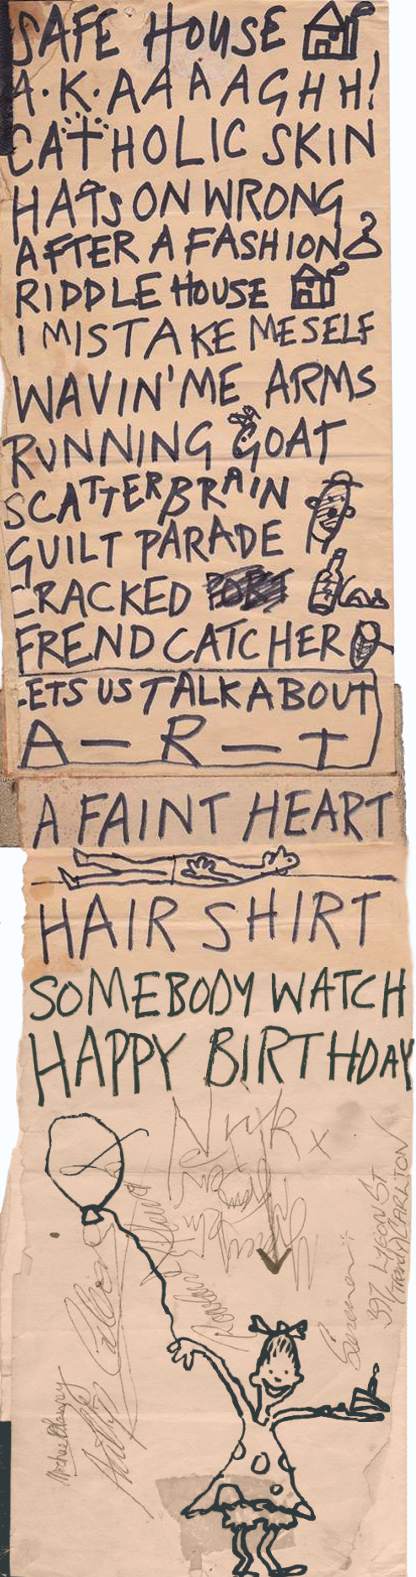 SAFE HOUSE
A.K.AAAAGHH!
CATHOLIC SKIN
HATS ON WRONG
AFTER A FASHION
RIDDLE HOUSE
I MISTAKE MESELF
WAVIN' ME ARMS
RUNNING GOAT
SCATTERBRAIN
GUILT PARADE
CRACKED PORT
FREND CATCHER
LETS US TALK ABOUT
A — R — T
A FAINT HEART
HAIR SHIRT
SOMEBODY WATCH
HAPPY BIRTHDAY
Nick x
397 LYGON ST
CARLTON